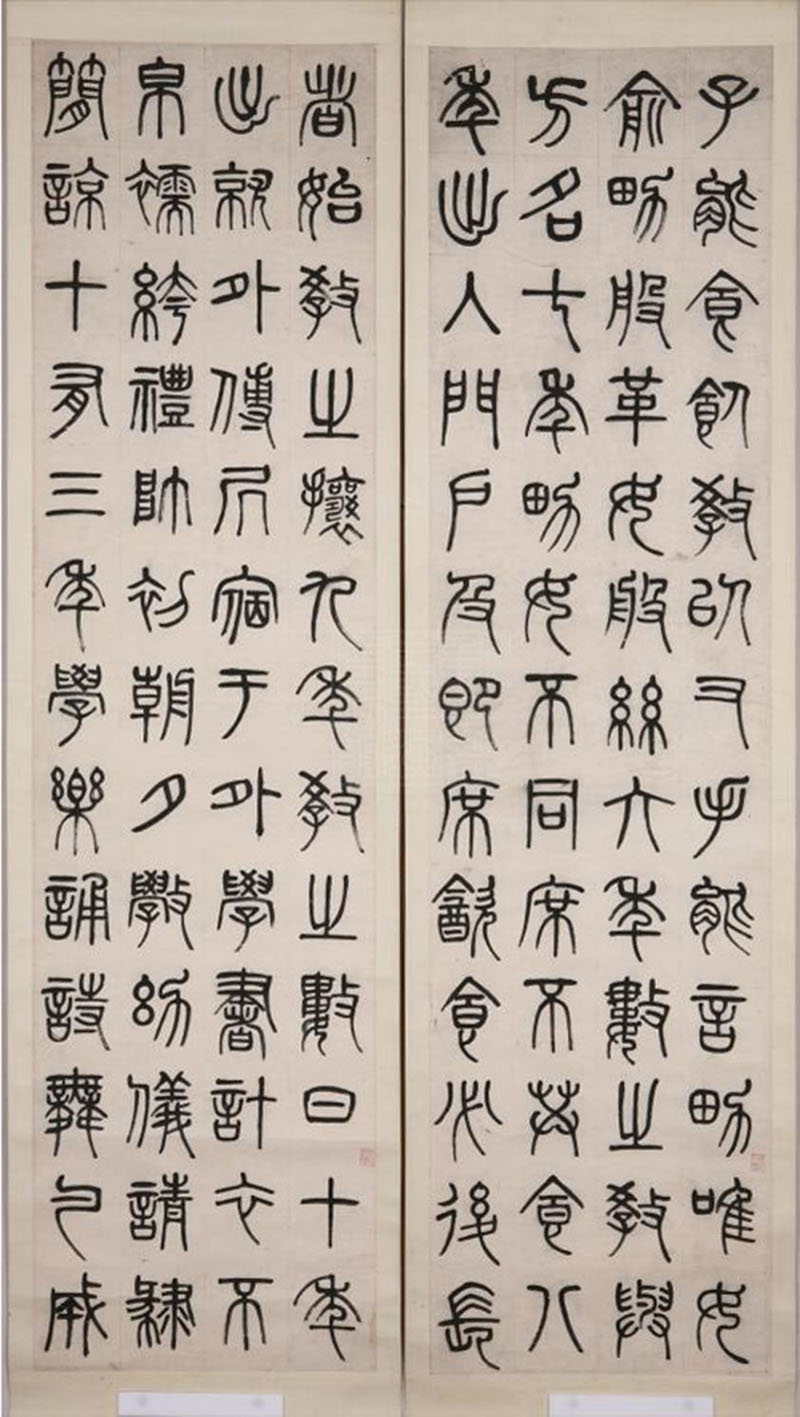 子能食飤教㠯又手能言男唯女
俞男般革女般絲六年數之教與
方名七年男女不同席不共食八
年出入門戶及即席㱃食必後長
者始教之攘九年教之數日十年
出就外傅凥宿于外學書計衣不
帛襦絝禮帥初朝夕斆幼儀請肄
簡諒十有三年學樂誦詩舞勺成